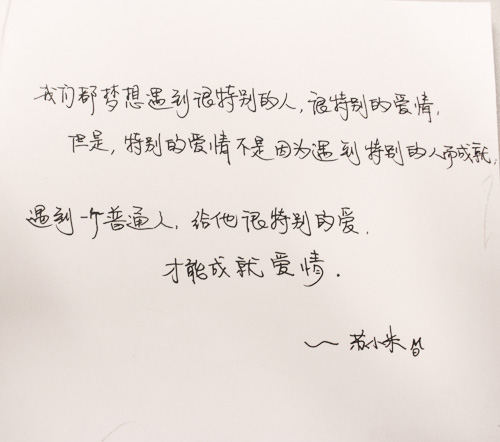 我们都梦想遇到很特别的人，很特别的爱情，
但是，特别的爱情不是因为遇到特别的人而成就，
遇到一个普通人，给他很特别的爱，
才能成就爱情．
～苏小米